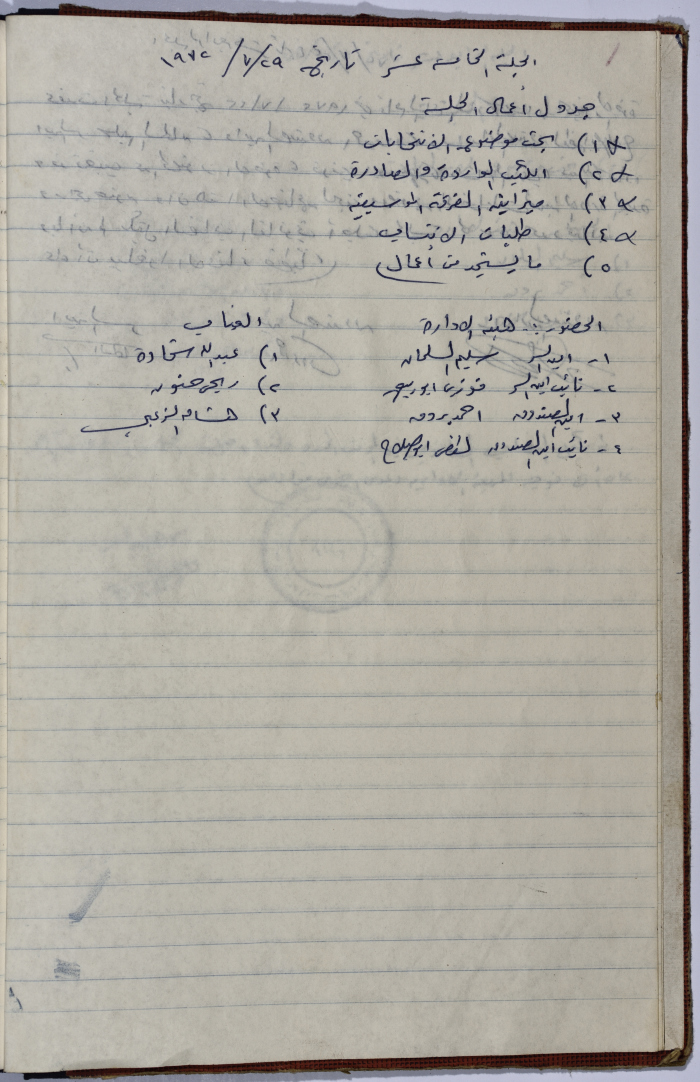 الجلسة الخامسة عشر تاريخ ٢٩/٧/١٩٧٢
جدول أعمال الجلسة
١) بحث موضوع الانتخابات
٢) الكتب الواردة والصادرة
٣) ميزانية الفرقة الموسيقية
٤) طلبات الانتساب
٥) ما يستجد من أعمال
الحضور: هيئة الادارة
١- امين السر سليم السلمان
٢- نائب امين السر فوزي ابو ربيع
٣- امين الصندوق احمد بردويه
٤- نائب امين الصندوق لطفي ابو صلاح
الغياب
١) عبد الله شحادة
٢) ربحي حنون
٣) هشام الزعبي